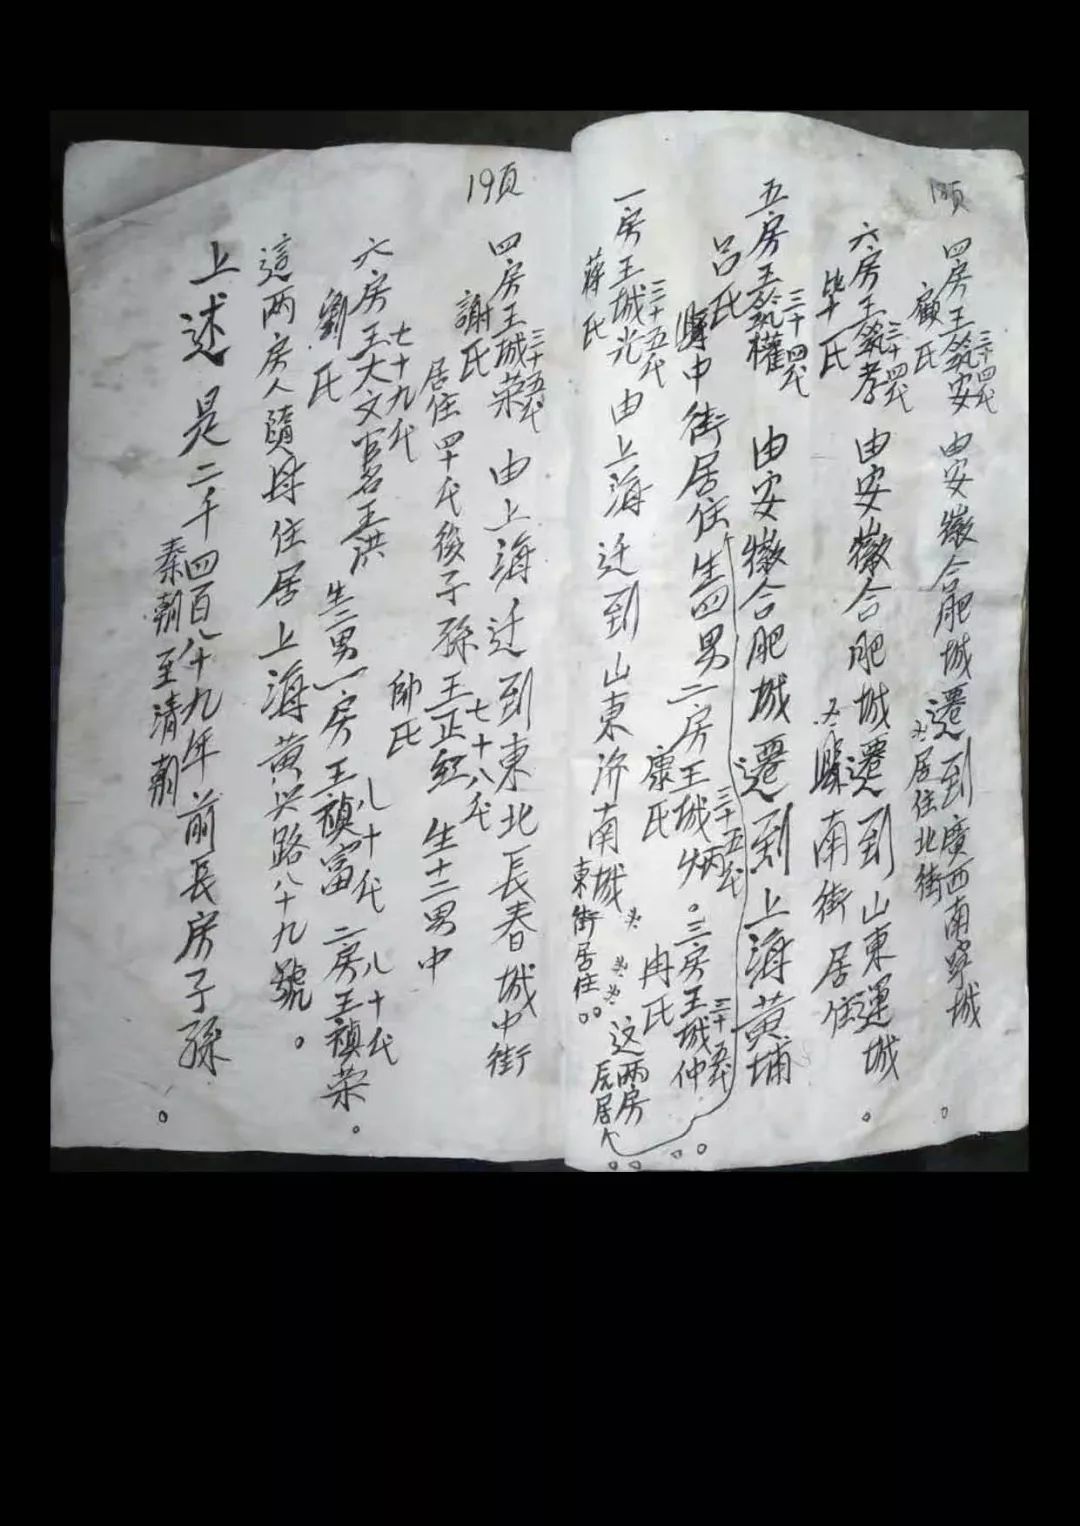 18頁
四房王
三十四代
安
顧氏
由安徽合肥城遷到廣西南寧城
居住北街
六房王
三十四代
孝
毕氏
由安徽合肥城遷到山東運城
縣南街居住
五房王
三十四代
權
吕氏
由安徽合肥城遷到上海黄埔
縣中街居住生四男二房王城炳。三房王城仲
三十五代
三十五代
康氏
冉氏
这两房
居
一房王城光由上海迁到山東济南城
三十五代
蒋氏
東街居住
19頁
四房王城荣由上海迁到東北長春城中街
三十五代
謝氏
居住四十代後子孫王正紅生十二男中
七十八代
帥氏
六房王大文官名王洪生二男一房王禎富二房王禎荣。
七十九代
八十代
八十代
劉氏
這两房人隨母住居上海黄兴路八十九號。
上述是二千四百八十九年前長房子孫。
秦朝至清朝